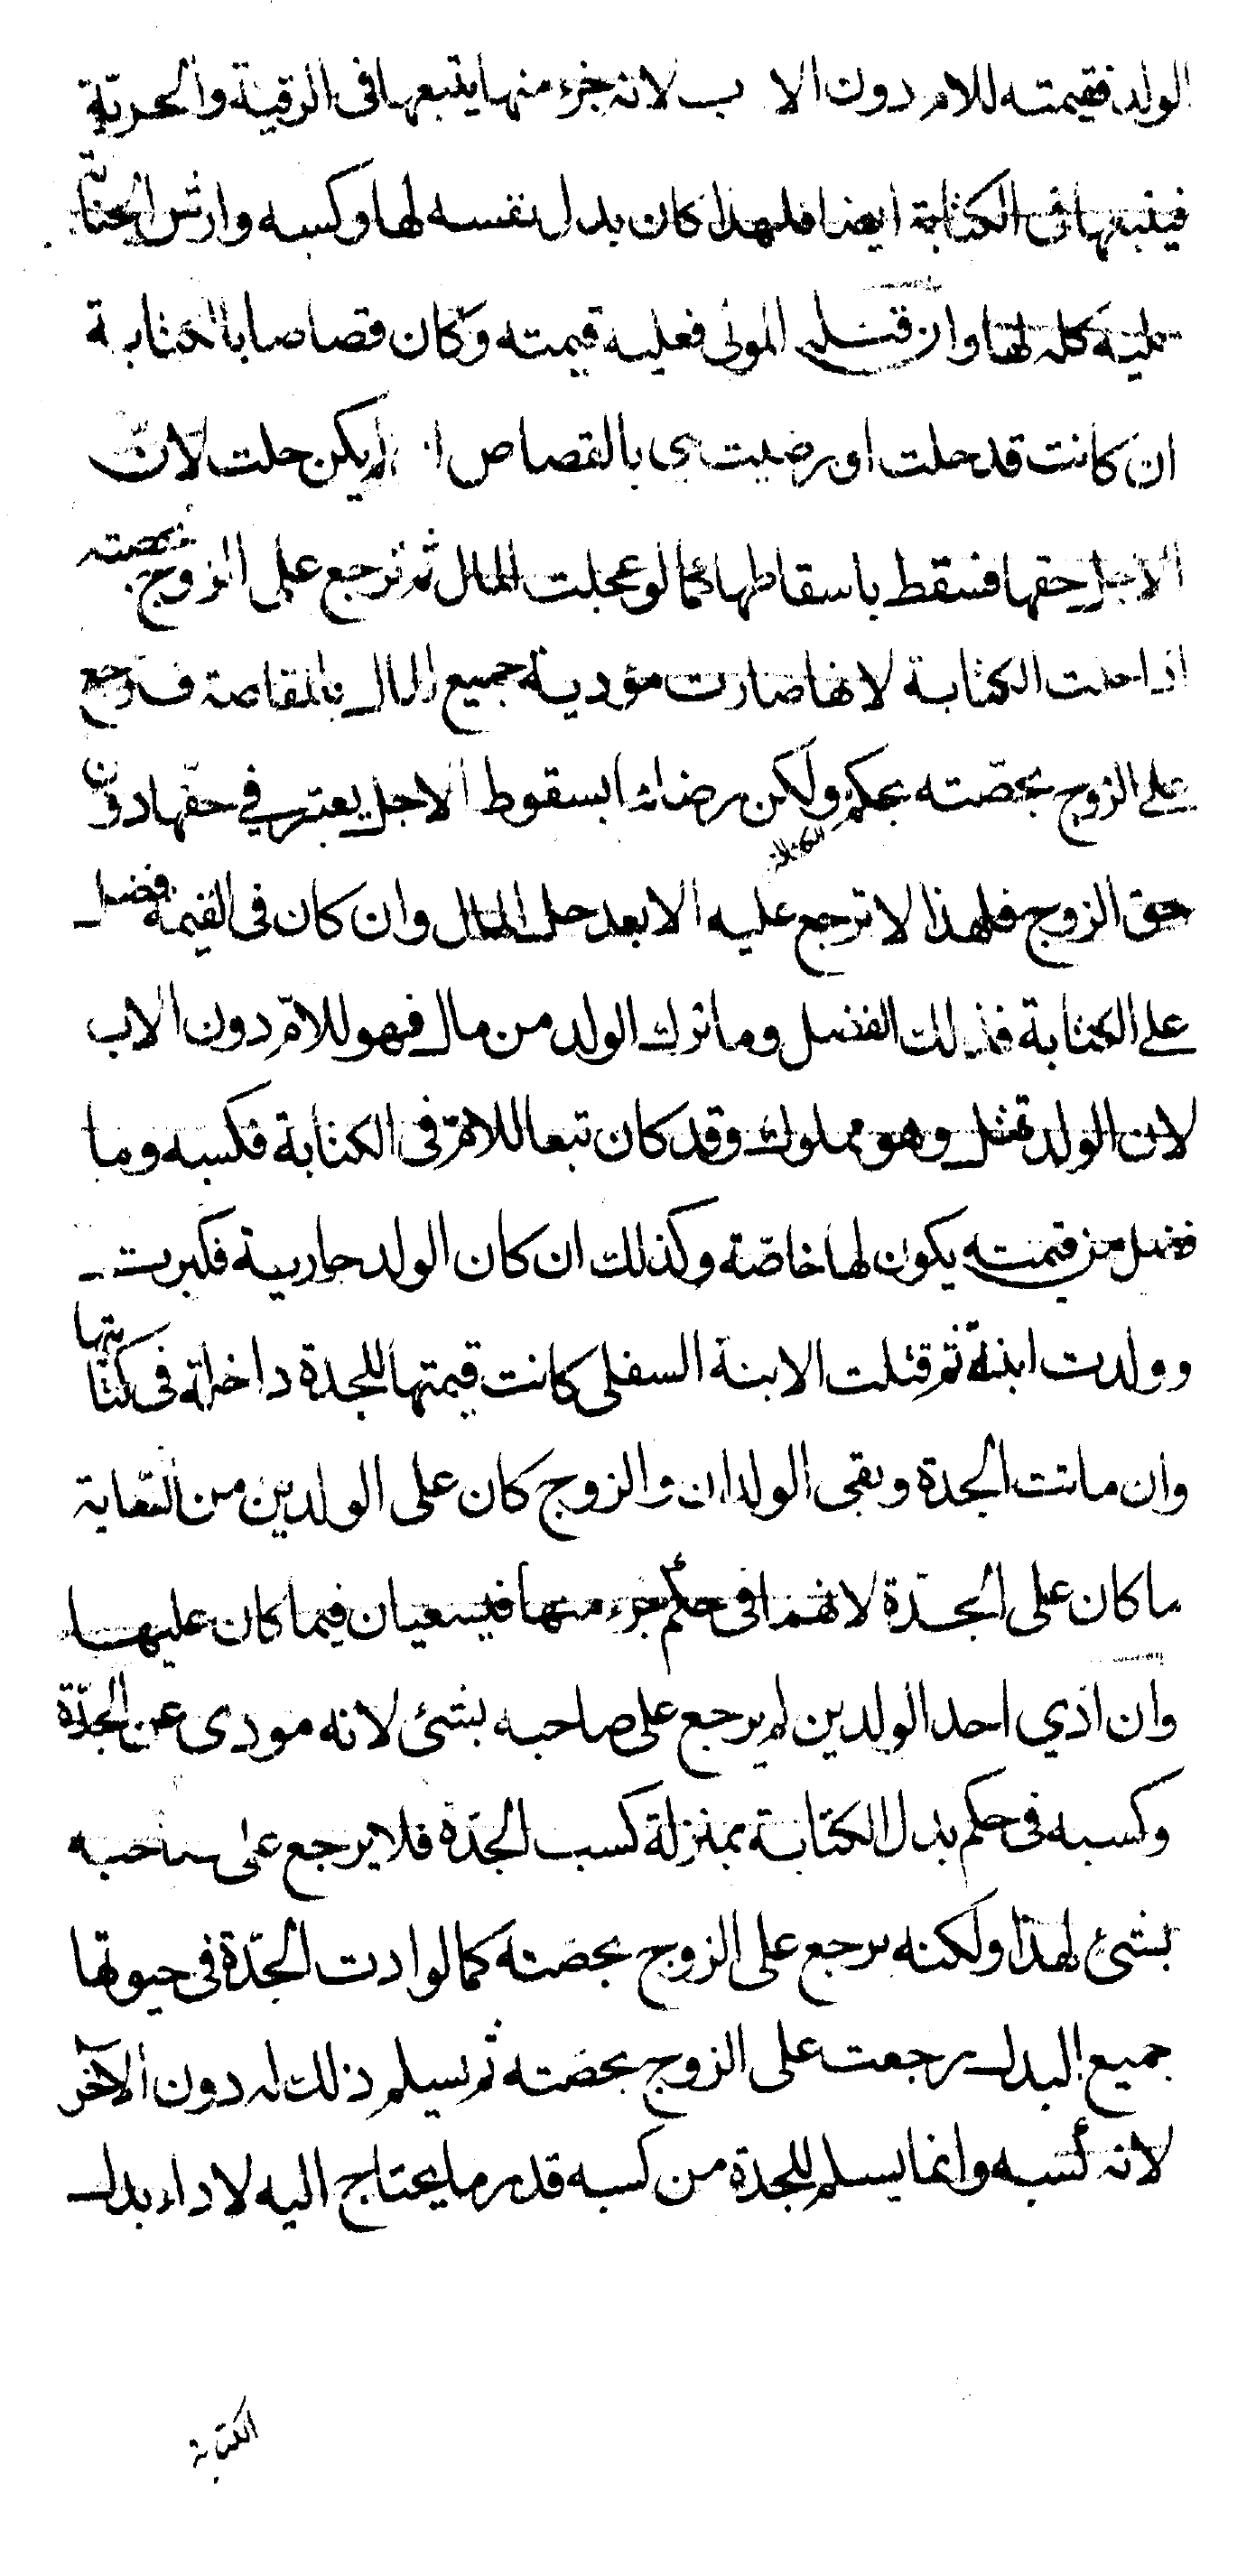 الولد فقيمته للام دون الاب لانه جزء منها يتبعها فى الرقية والحرية
فيتبعها فى الكتابة ايضا فلهذا كان بدل نفسه لها وكسبه وارش الجناية
عليه كله لها وان قتله المولى فعليه قيمته وكان قصاصا بالكتابة
ان كانت قد حلت او رضيت هى بالقصاص ان لم يكن حلت لان
الاجل حقها فسقط باسقاطها كما لو عجلت المال ثم ترجع على الزوج بحصته
اذا حلت الكتابة لانها صارت مؤدية جميع المال بالمقاصة فترجع
على الزوج بحصته بحكم الكفالة ولكن رضاها بسقوط الاجل يعتبر في حقها دون
حق الزوج فلهذا لا ترجع عليه الا بعد حل المال وان كان فى القيمة فضل
على الكتابة فذلك الفضل وما ترك الولد من مال فهو للام دون الاب
لان الولد قتل وهو مملوك وقد كان تبعا للام فى الكتابة فكسبه وما
فضل من قيمته يكون لها خاصة وكذلك ان كان الولد جارية فكبرت
وولدت ابنة ثم قتلت الابنة السفلى كانت قيمتها للجدة داخلة فى كتابتها
وان ماتت الجدة وبقى الولدان والزوج كان على الولدين من السعاية
ما كان على الجدة لانهما فى حكم جزء منها فيسعيان فيما كان عليها
وان ادي احد الولدين لم يرجع على صاحبه بشئ لانه مودى عن الجدة
وكسبه فى حكم بدل الكتابة بمنزلة كسب الجدة فلا يرجع على صاحبه
بشئ لهذا ولكنه يرجع على الزوج بحصته كما لو ادت الجدة فى حيوتها
جميع البدل رجعت على الزوج بحصته ثم يسلم ذلك له دون الآخر
لانه كسبه وانما يسلم للجدة من كسبه قدر ما يحتاج اليه لاداء بدل
الكتابة